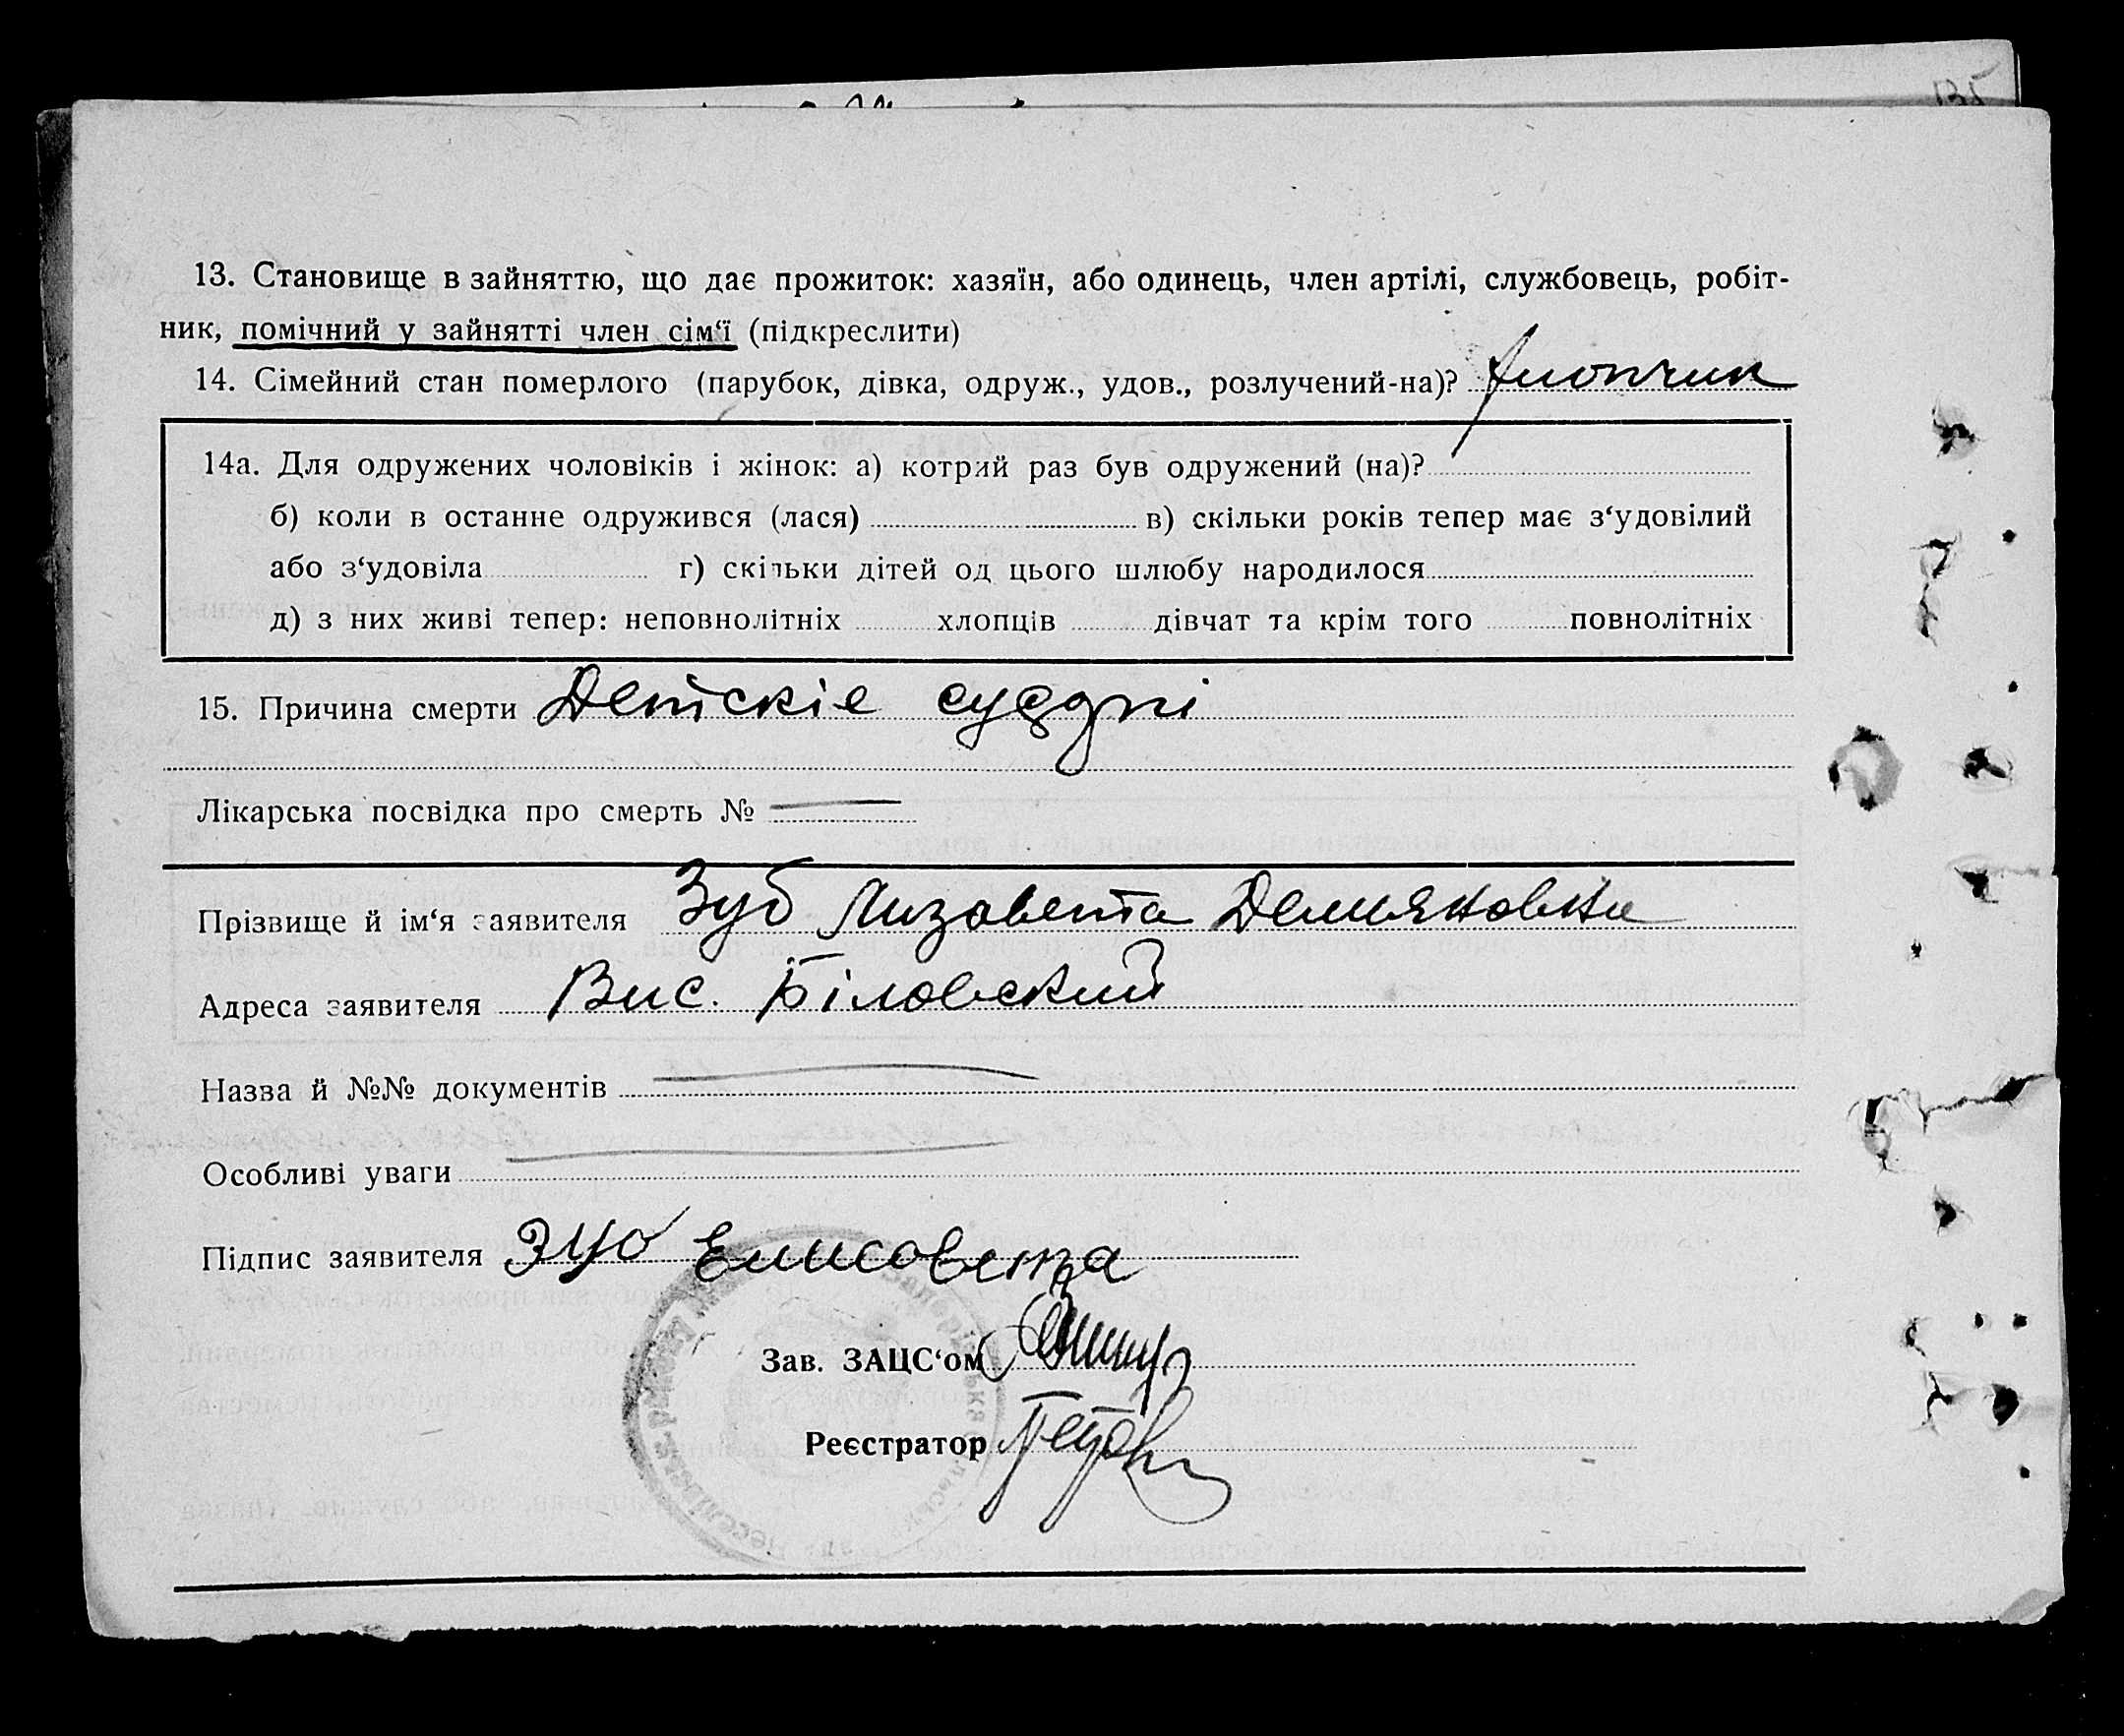 13. Становище в зайняттю, що дає прожиток: хазяїн, або одинець, член артілі, службовець, робіт-
ник, помічний у зайнятті член сім‘ї (підкреслити)
14. Сімейний стан померлого (парубок, дівка, одруж., удов., розлучений-на)? хлопчик
14а. Для одружених чоловіків і жінок: а) котрий раз був одружений (на)?
б) коли в останне одружився (лася) в) скільки років тепер має з‘удовілий
або з‘удовіла г) скільки дітей од цього шлюбу народилося
д) з них живі тепер: неповнолітніх хлопців дівчат та крім того повнолітніх
15. Причина смерти Детскіе
Лікарська посвідка про смерть №
Прізвище й ім‘я заявителя Зуб Лизавета Демьяновна
Адреса заявителя Вис. Біловский
Назва й №№ документів
Особливі уваги
Підпис заявителя Зуб Елисовета
Зав. ЗАЦС‘ом
Реєстратор